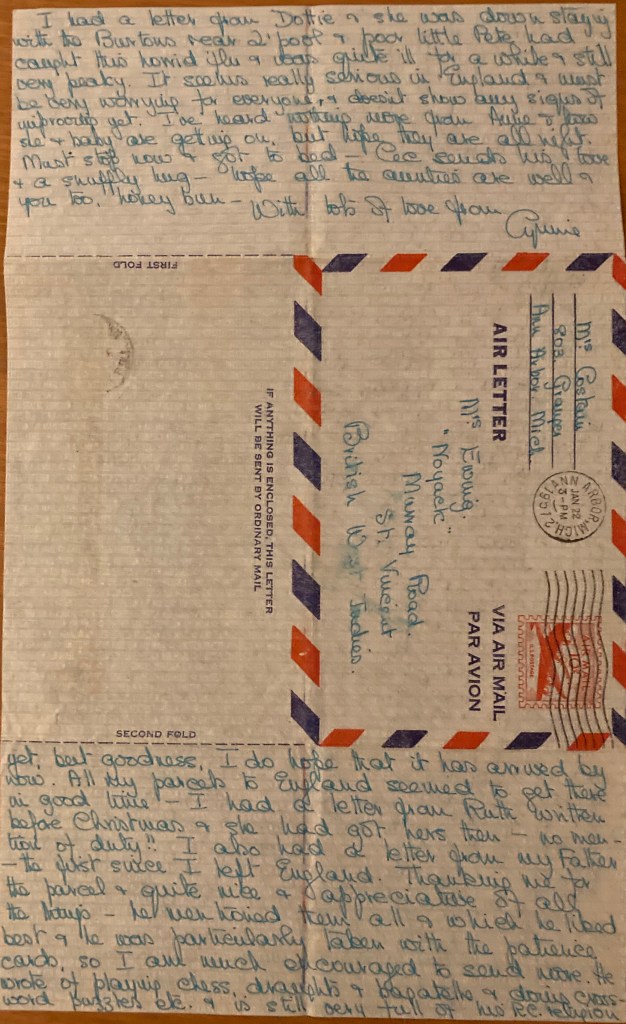 I had a letter from Dottie & she was down staying
with the Burtons near L'pool & poor little Pete had
caught this horrid 'flu & was quite ill for a while & still
very peaky. It seems really serious in England & must
be very worrying for everyone, & doesn't show any signs of
improving yet. I've heard nothing more from Anne & how
she & baby are getting on, but hope they are all right.
Must stop now & got to bed — Cec sends his love
& a snuffly hug — hope all the aunties are well &
you too, honey bun — With lots of love from
FIRST FOLD
Mrs Costain
803. Granger
Ann Arbor. Mich
AIR LETTER
ANN ARBOR, MICH.
JAN 22
3 - PM
1951
Mrs Ewing.
"Noyack"
Murray Road.
St. Vincent
British West Indies.
VIA AIR MAIL
PAR AVION
AIR MAIL
10
IF ANYTHING IS ENCLOSED, THIS LETTER
WILL BE SENT BY ORDINARY MAIL
SECOND FOLD
yet, but goodness, I do hope that it has arrived by
now. All my parcels to England seemed to get there
in good time — I had a letter from Ruth written
before Christmas & she had got hers then — no men-
tion of duty!! I also had a letter from my Father
— the first since I left England. Thanking me for
the parcel & quite nice & appreciative of all
the things — he mentioned them all & which he liked
best & he was particularly taken with the patience
cards, so I am much encouraged to send more. He
wrote of playing chess, draughts & bagatelle & doing cross-
word puzzles etc. & is still very full of his R.C. religion